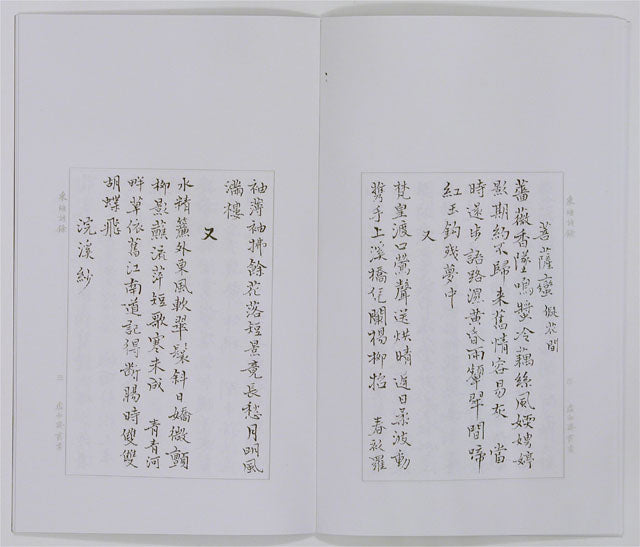 菩薩蠻 擬花間
薔薇香墜鳴螿冷藕絲風嫋娉婷
影期約不歸來舊情容易灰 當
時送步語路濕黃昏雨顰翠間啼
紅玉鈎殘夢中
又
梵皇渡口鶯聲送烘晴遲日柔波動
携手上溪橋倚闌楊柳招 春衫羅
袖薄袖拂餘花落短景竟長愁月明風
滿樓
又
水精簾外東風軟翠鬟斜日嬌微顫
柳景蘸流萍短歌寒未成 青青河
畔草依舊江南道記得斷腸時雙雙
胡蝶飛
浣溪紗